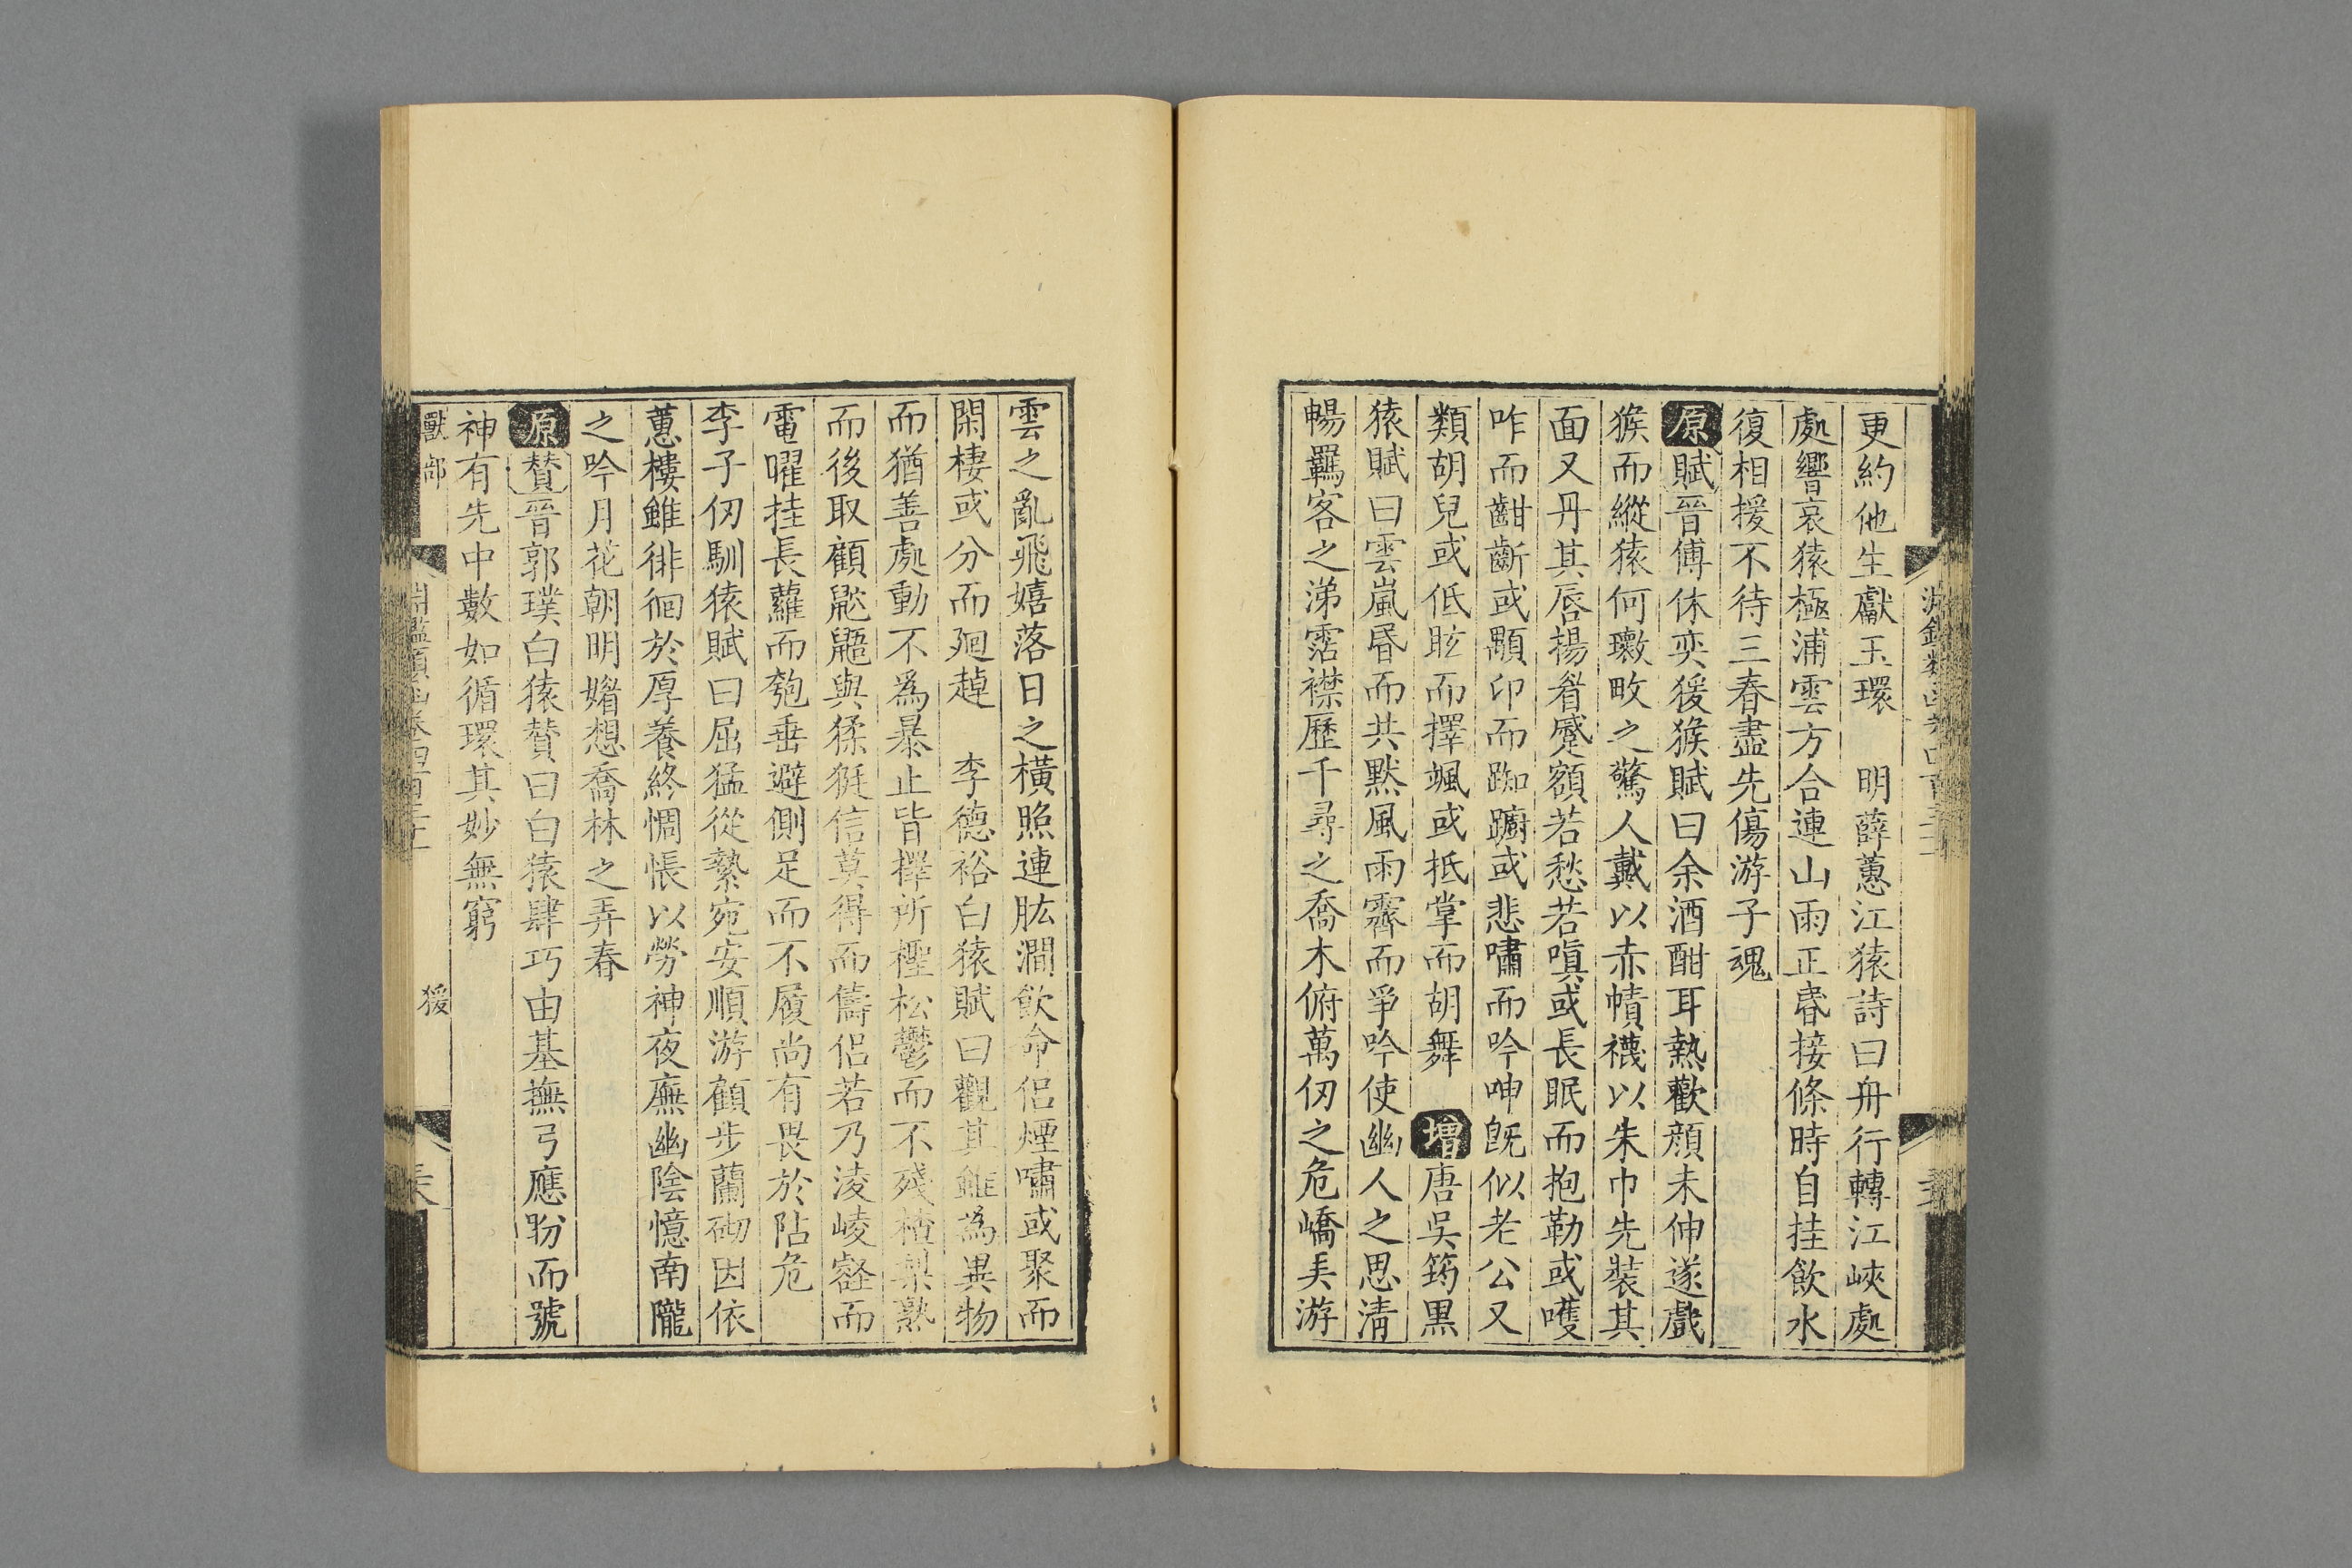 更約他生獻玉環　明薛蕙江猿詩曰舟行轉江峽處
處響哀猿極浦雲方合連山雨正昬接條時自挂飲水
復相援不待三春盡先傷游子魂
原賦晉傅休奕猨猴賦曰余酒酣耳熱歡顔未伸遂戲
猴而縱猿何瓌畋之驚人戴以赤幘襪以朱巾先裝其
面又丹其唇揚眉蹙額若愁若嗔或長眠而抱勒或嚄
咋而齟齗或顒卬而踟躕或悲嘯而吟呻旣似老公又
類胡兒或低眩而擇颯或抵掌而胡舞　增唐吳筠黑
猿賦曰雲嵐昬而共默風雨霽而爭吟使幽人之思清
暢羈客之涕霑襟歷千尋之喬木俯萬仞之危嶠美游
雲之亂飛嬉落日之橫照連肱澗飲命侶煙嘯或聚而
閑棲或分而廻趠　李德裕白猿賦曰觀其雖爲異物
而猶善處動不爲暴止皆擇所檉松鬱而不殘楂梨熟
而後取顧鼯與猱狿信莫得而儔侶若乃淩崚壑而
電曜挂長蘿而匏垂避側足而不履尚有畏於阽危
李子仞馴猿賦曰屈猛從縶宛安順游顧步蘭砌因依
蕙樓雖徘徊於厚養終惆悵以勞神夜廡幽陰憶南隴
之吟月花朝明媚想喬林之弄春
原贊晉郭璞白猿贊曰白猿肆巧由基撫弓應眄而號
神有先中數如循環其妙無窮
獸部
猨